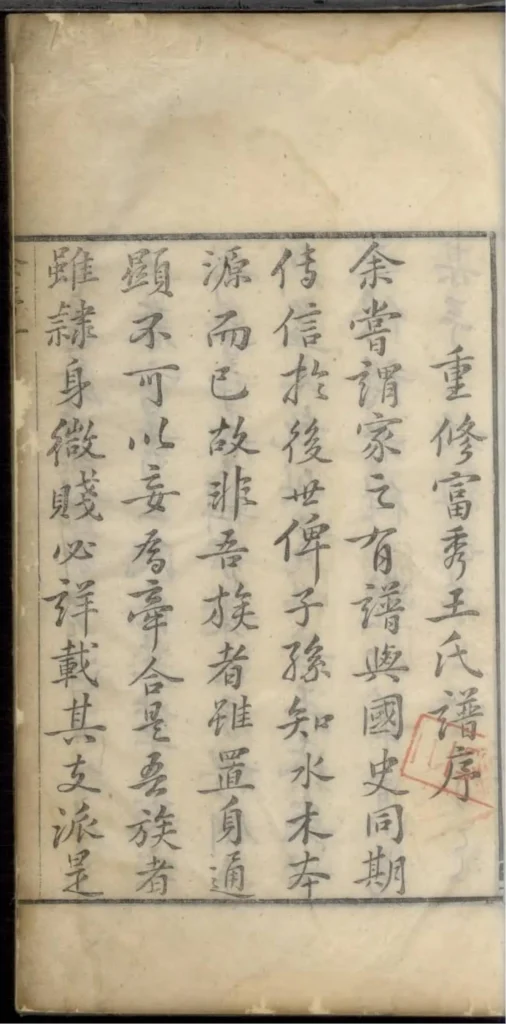 重修富秀王氏譜序
余嘗謂家之有譜與國史同期
傳信於後世俾子孫知水木本
源而已故非吾族者雖置身通
顯不可以妄為牽合是吾族者
雖隸身微賤必詳載其支派是